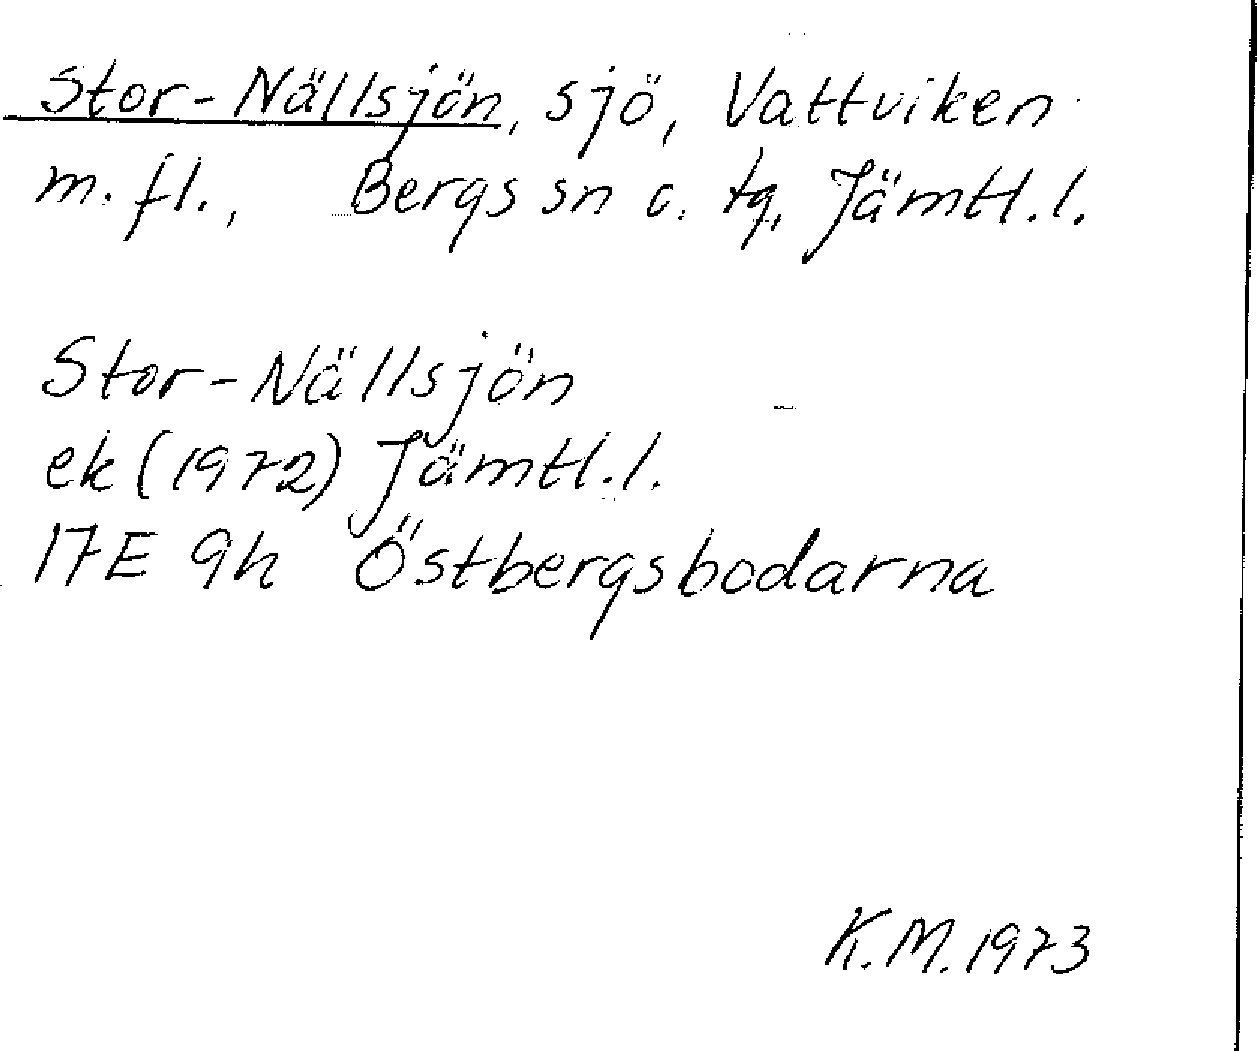 Stor-Nällsjön, sjö, Vattviken
m.fl., Bergs sn o. tg, Jämtl.l.
Stor-Nällsjön
ek (1972) Jämtl.l.
17E 9h Östbergsbodarna
K.M. 1973